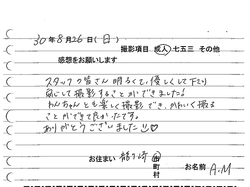 30年8月26日(日)
撮影項目 成人 七五三 その他
感想をお願いします
スタッフの皆さん明るくて、優しくして下さり
安心して撮影することができました!
ちゃんとも楽しく撮影でき、かわいく撮る
ことができて良かったです。
ありがとうございました!!♡
お住まい 市町村
お名前 A.M